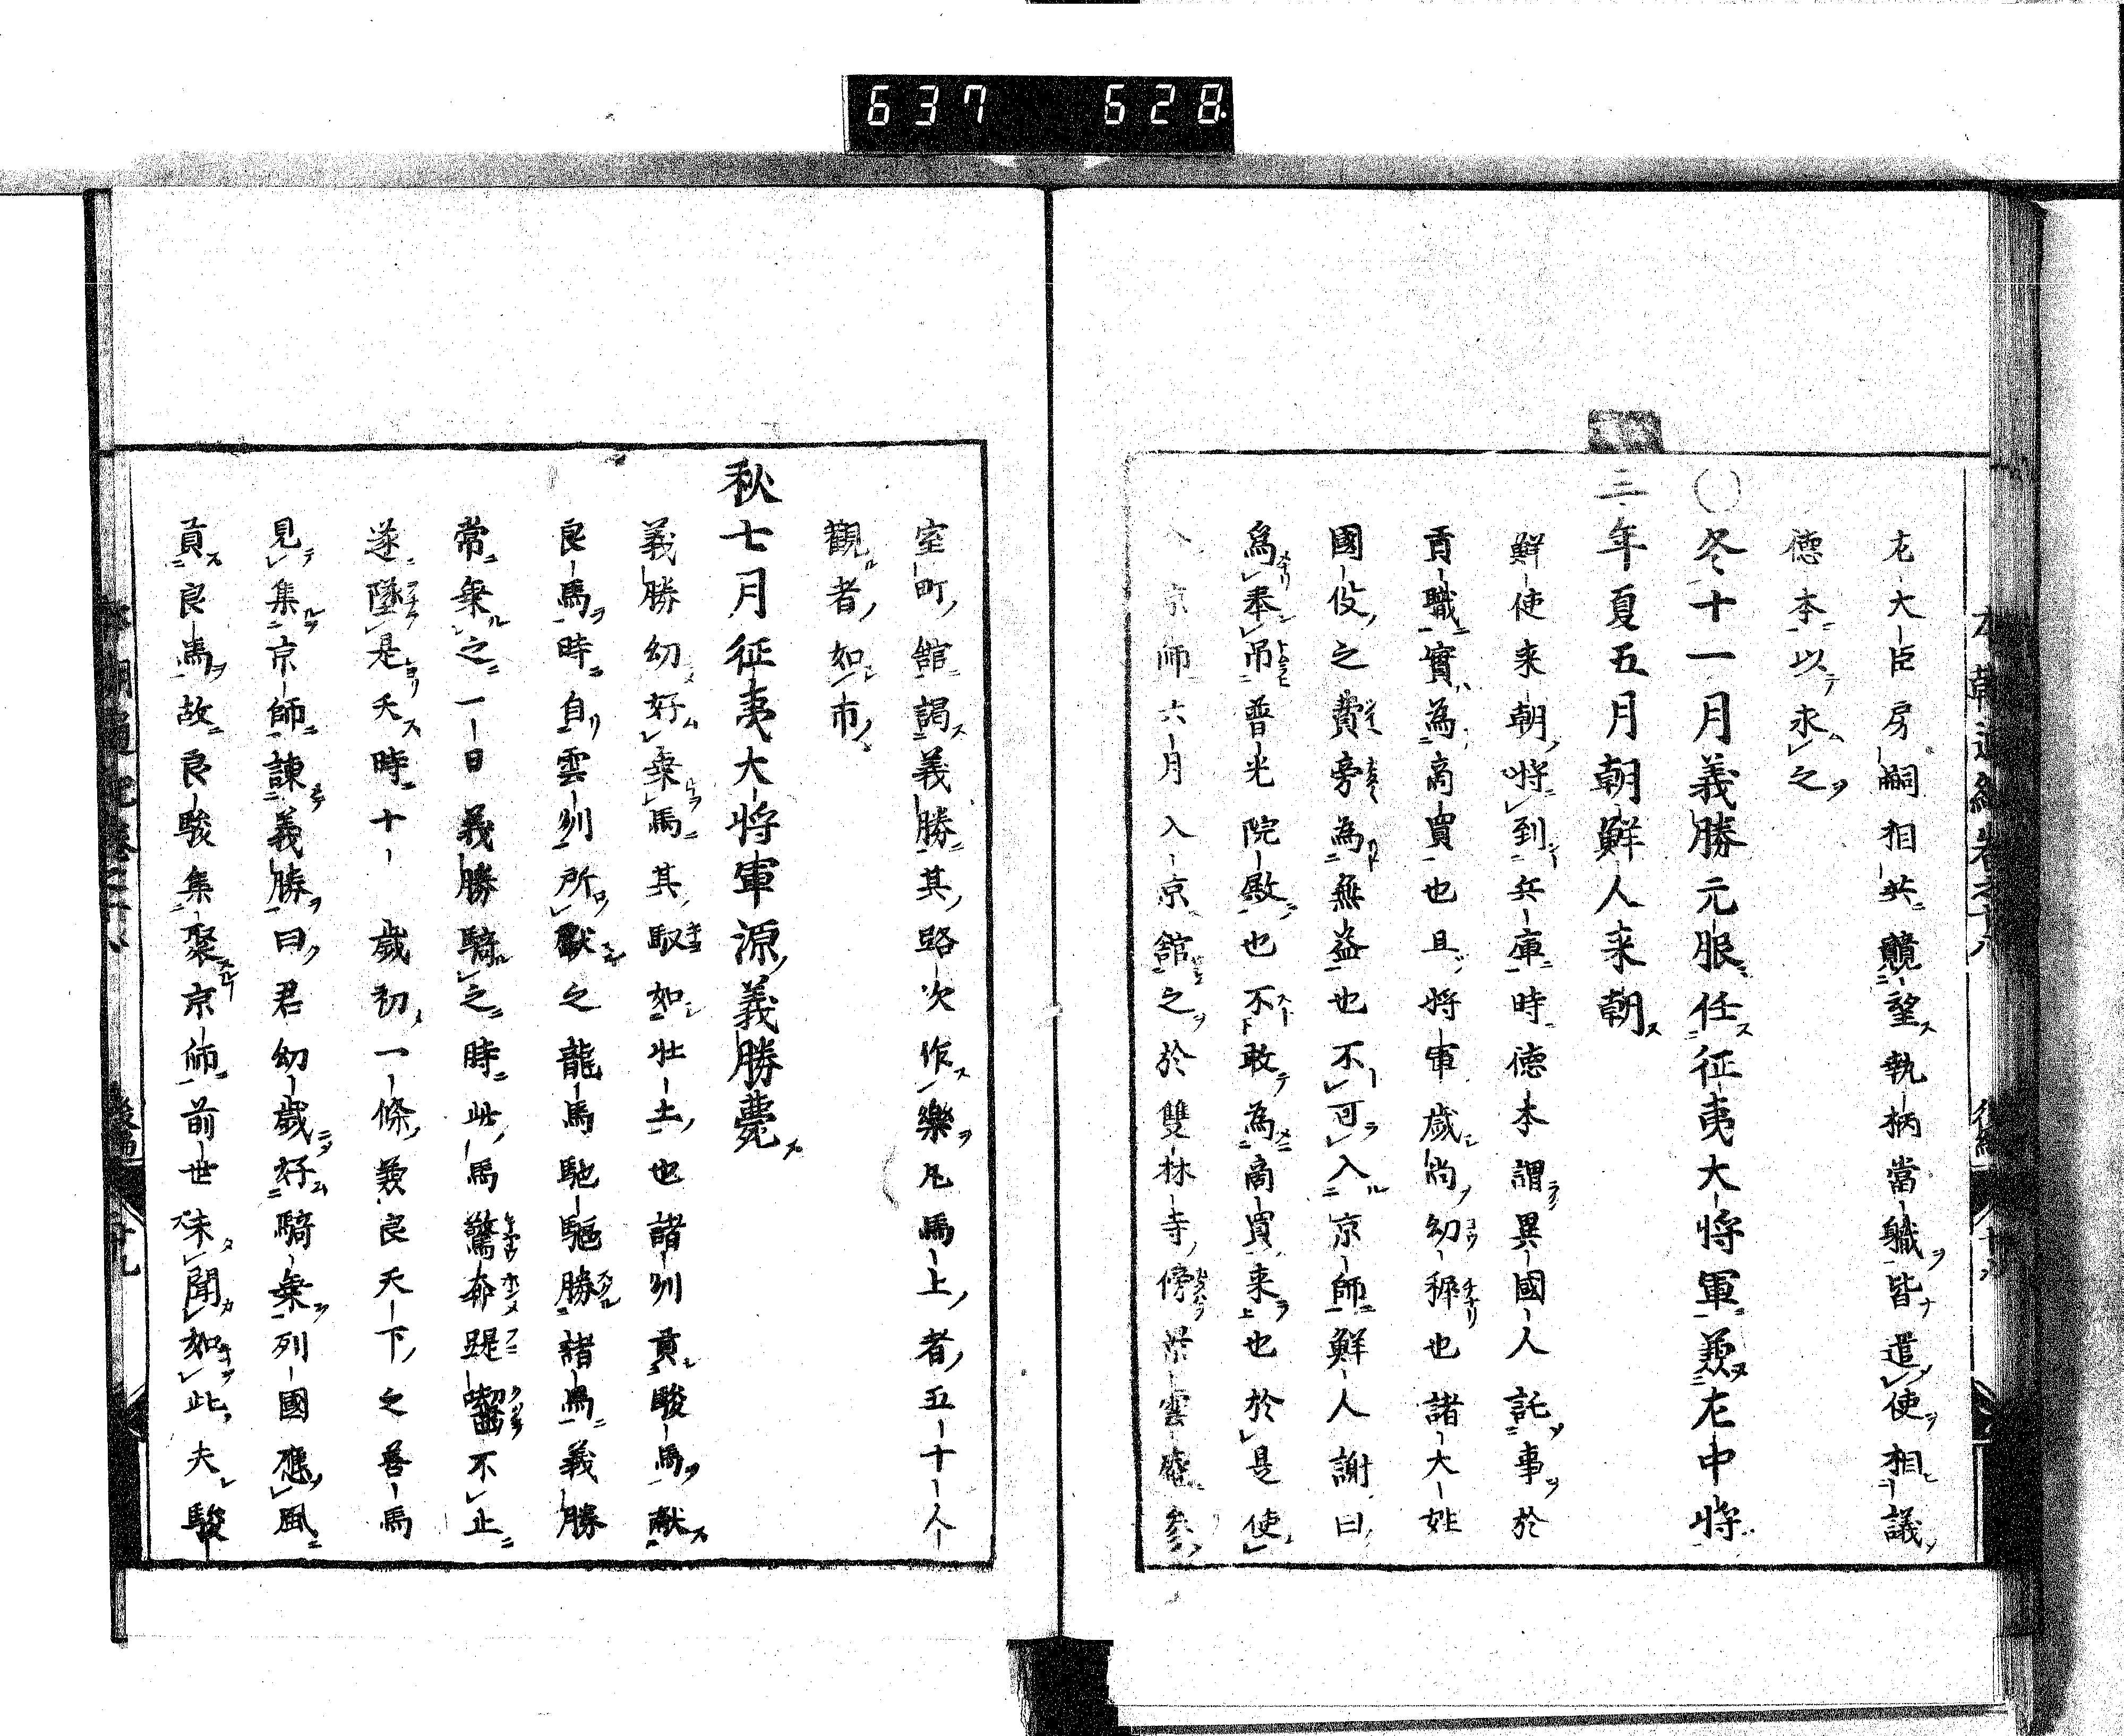 637 628
左大臣房嗣相共競望執柄當職皆遣使相議
德本以求之
○冬十一月義勝元服任征夷大将軍兼左中将
三年夏五月朝鮮人来朝
鮮使来朝将到兵庫時德本謂異國人託事於
貢職實為商買也且将軍歳尚幼穉也諸大姓
國役之費旁為無益也不可入京師鮮人謝曰
為奉吊普光院殿也不敢為商買来也於是使
入京師六月入京館之於雙林寺傍
室町館謁義勝其路次作樂凡馬上者五十人
觀者如市
秋七月征夷大将軍源義勝薨
義勝幼好乗馬其馭如壮士也諸州貢駿馬献
良馬時自雲州所獻之龍馬馳驅勝諸馬義勝
常乗之一日義勝騎之時此馬驚奔踶嚙不止
遂墜是夭時十歳初一條兼良天下之善馬
見集京師諫義勝曰君幼歳好騎乗列國應風
貢良馬故良駿集聚京師前世未聞如此夫駿